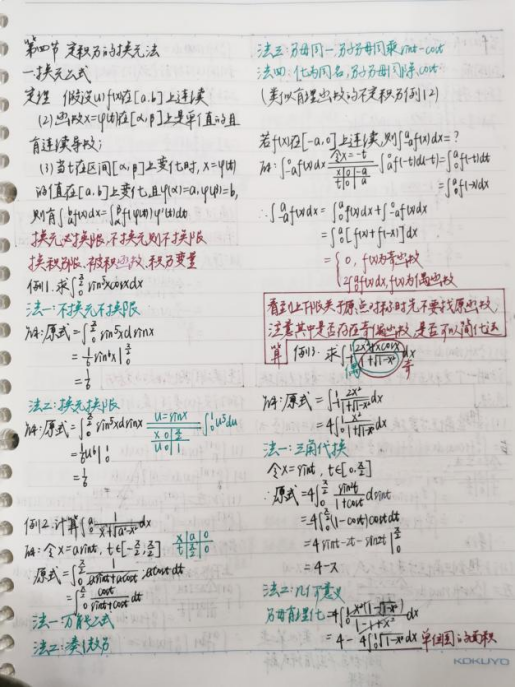 第四节 定积分的换元法
一.换元公式
定理 假设(1)f(x)在[a,b]上连续
(2)函数x=φ(t)在[α,β]上是单值的且
有连续导数;
(3)当t在区间[α,β]上变化时,x=φ(t)
的值在[a,b]上变化,且φ(α)=a,φ(β)=b,
则有∫_a^b f(x)dx=∫_α^β f(φ(t))φ'(t)dt
换元必换限,不换元则不换限
换积分限,被积函数,积分变量
例1.求∫_0^{π/2} sin⁵xcosxdx
法一:不换元不换限
解:原式=∫_0^{π/2} sin⁵xdsinx
=1/6 sin⁶x|_0^{π/2}
=1/6
法二:换元换限
解:原式=∫_0^{π/2} sin⁵xdsinx u=sinx ∫_0^1 u⁵du
x 0 π/2
u 0 1
=1/6 u⁶|_0^1
=1/6
例2.计算∫_0^a 1/(x+√(a²-x²)) dx
解:令x=asint, t∈[-π/2,π/2]
x a 0
t π/2 0
原式=∫_0^{π/2} 1/(asint+acost)·acostdt
=∫_0^{π/2} cost/(sint+cost) dt
法一:万能公式
法二:凑微分
法三:分母同一,分子分母同乘sint-cost
法四:化为同名,分子分母同除cost
(类似有理函数的不定积分例12)
若f(x)在[-a,0]上连续,则∫_{-a}^a f(x)dx=?
解:∫_{-a}^0 f(x)dx 令x=-t ∫_a^0 f(-t)d(-t)=∫_0^a f(-t)dt
x 0 -a
t 0 a
=∫_0^a f(-x)dx
∴∫_{-a}^a f(x)dx=∫_0^a f(x)dx+∫_{-a}^0 f(x)dx
=∫_0^a [f(x)+f(-x)]dx
={0, f(x)为奇函数
2∫_0^a f(x)dx,f(x)为偶函数
看到上下限关于原点对称时先不要找原函数,
注意其中是否存在奇偶函数,是否可以简化运
算 例3.求∫_{-1}^1 (2x²+xcosx)/(1+√(1-x²)) dx
偶 奇
解:原式=∫_{-1}^1 2x²/(1+√(1-x²)) dx
=4∫_0^1 x²/(1+√(1-x²)) dx
法一:三角代换
令x=sint, t∈[0,π/2]
∴原式=4∫_0^{π/2} sin²t/(1+cost) dsint
=4∫_0^{π/2} (1-cost)costdt
=4sint-2t-sin2t|_0^{π/2}
=4-π
法二:几何意义
分母有理化=4∫_0^1 x²(1-√(1-x²))/(1-1+x²) dx
=4-4∫_0^1 √(1-x²)dx 单位圆的面积
KOKUYO